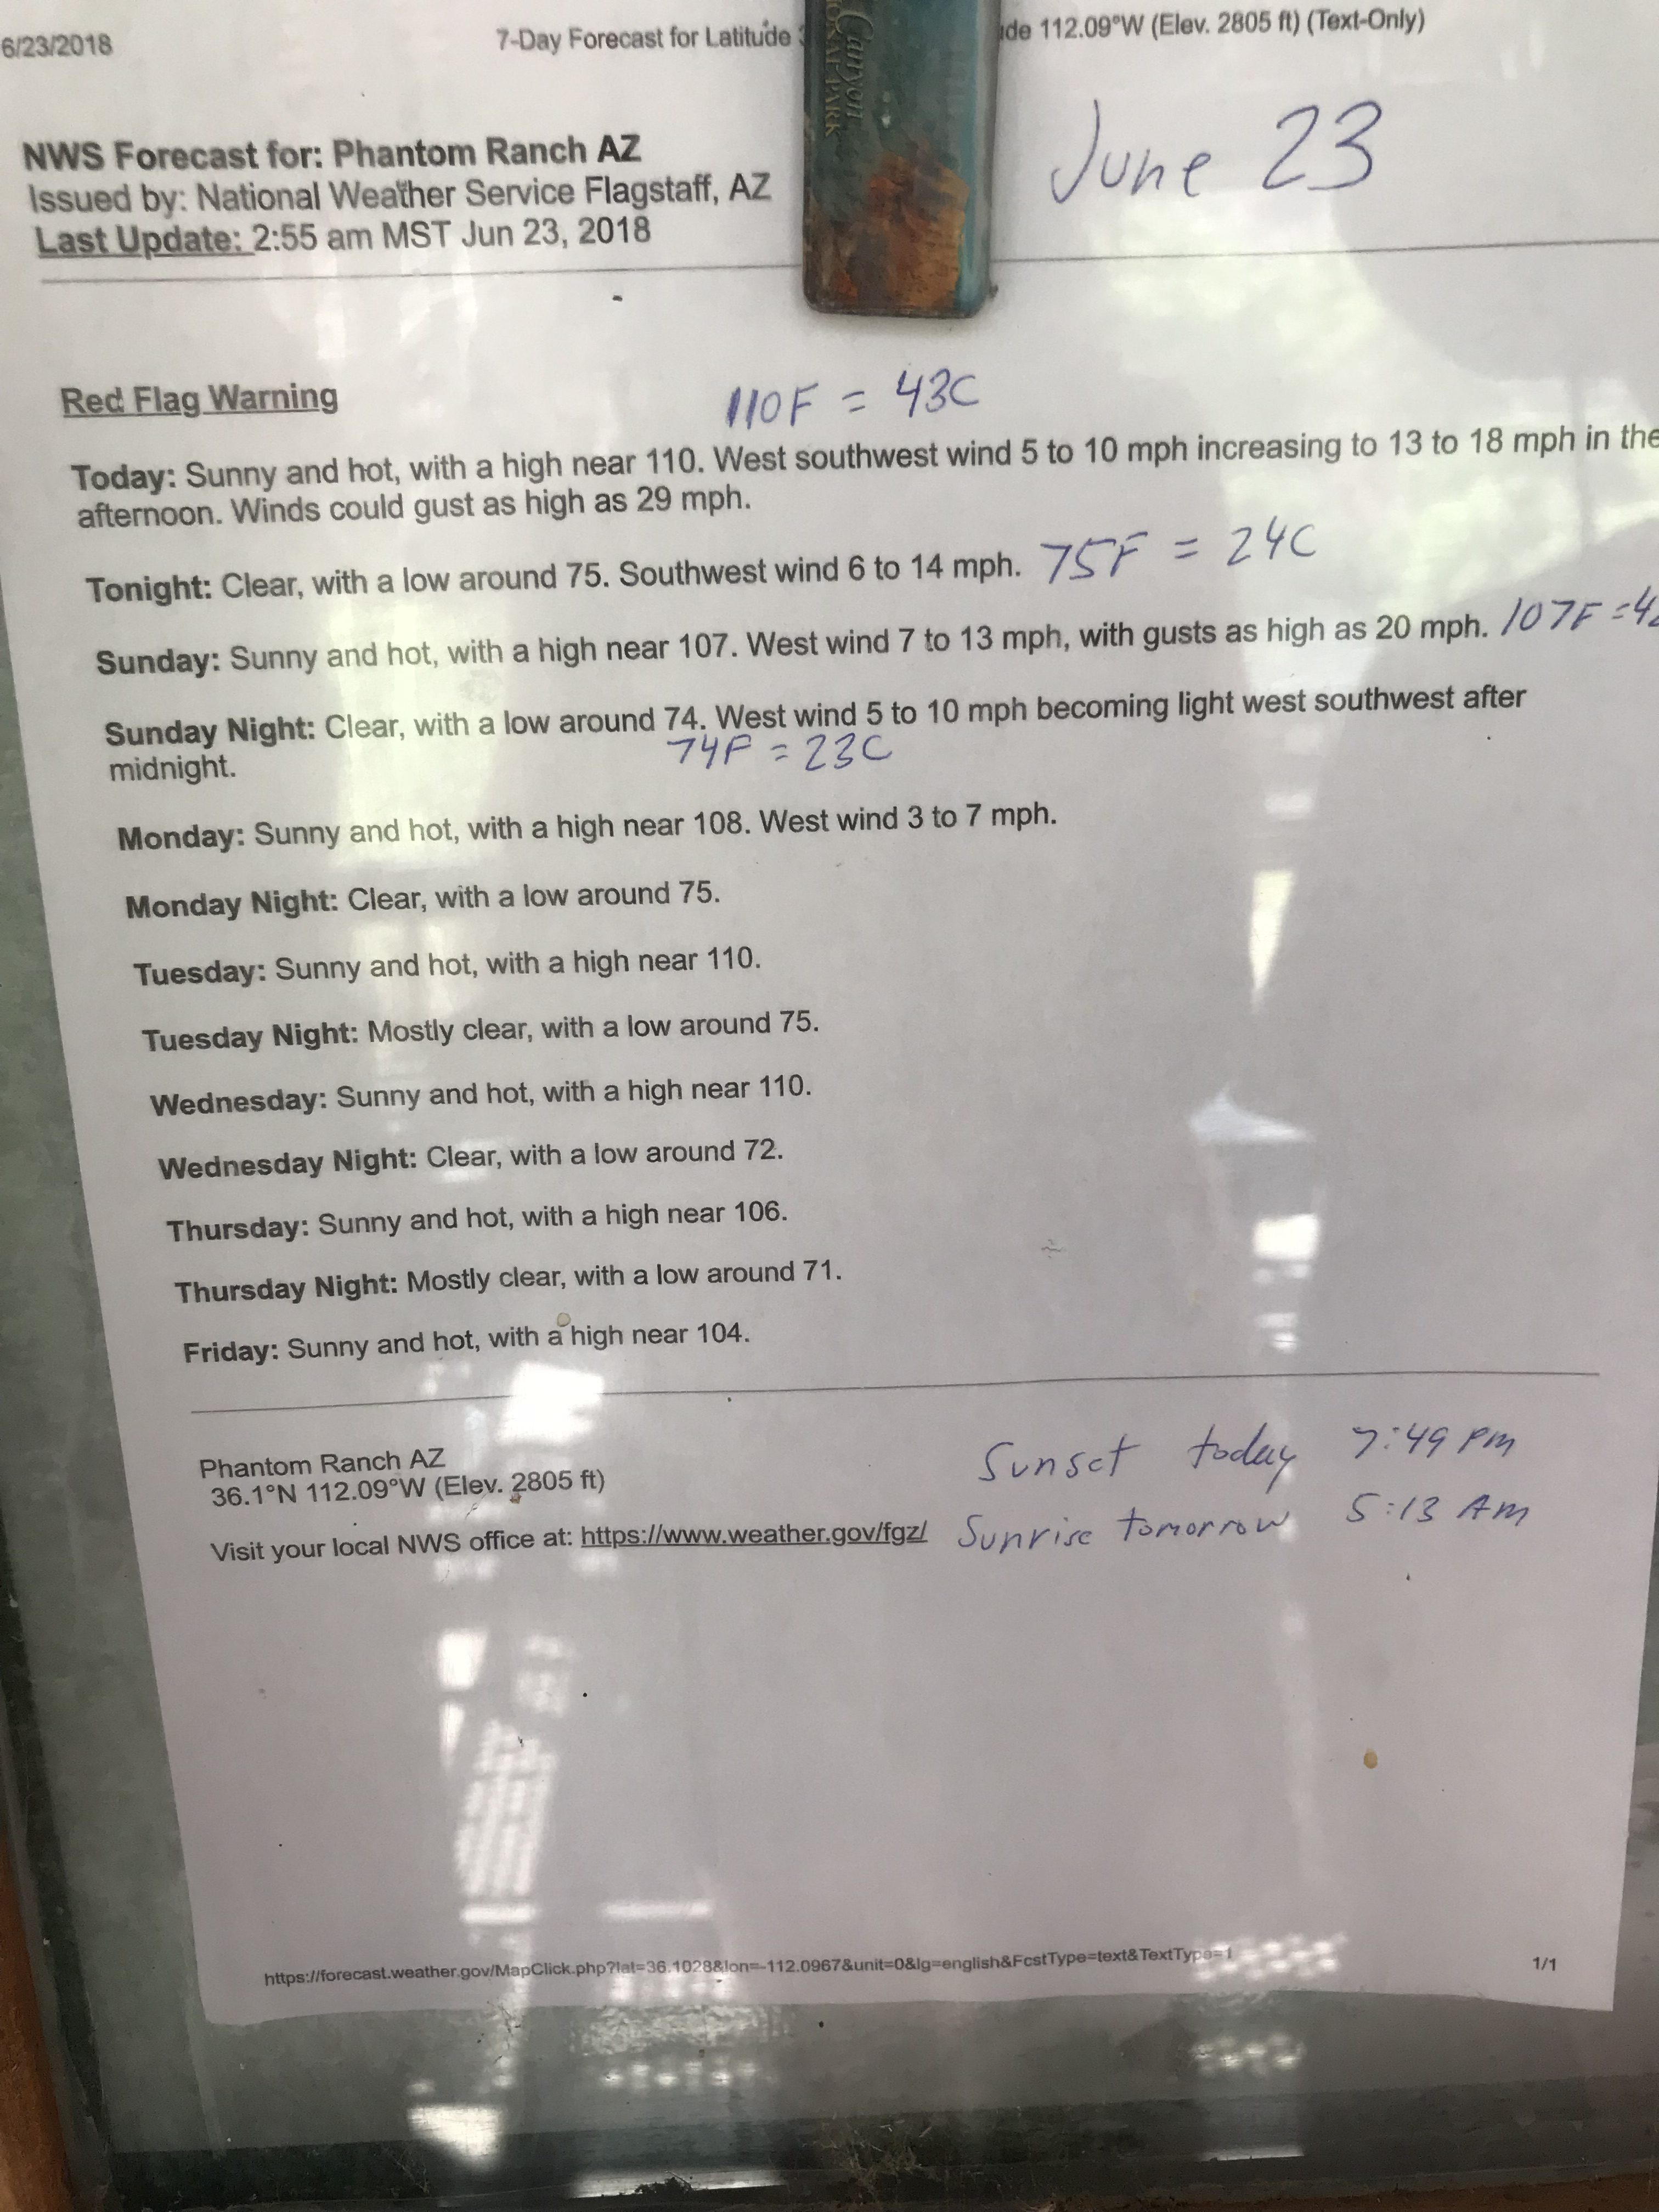 6/23/2018 7-Day Forecast for Latitude 112.09°W (Elev. 2805 ft) (Text-Only)
Canyon
PARK
June 23
NWS Forecast for: Phantom Ranch AZ
Issued by: National Weather Service Flagstaff, AZ
Last Update: 2:55 am MST Jun 23, 2018
Red Flag Warning
110F = 43C
Today: Sunny and hot, with a high near 110. West southwest wind 5 to 10 mph increasing to 13 to 18 mph in the
afternoon. Winds could gust as high as 29 mph.
Tonight: Clear, with a low around 75. Southwest wind 6 to 14 mph. 75F = 24C
Sunday: Sunny and hot, with a high near 107. West wind 7 to 13 mph, with gusts as high as 20 mph. 107F =
Sunday Night: Clear, with a low around 74. West wind 5 to 10 mph becoming light west southwest after
midnight. 74F = 23C
Monday: Sunny and hot, with a high near 108. West wind 3 to 7 mph.
Monday Night: Clear, with a low around 75.
Tuesday: Sunny and hot, with a high near 110.
Tuesday Night: Mostly clear, with a low around 75.
Wednesday: Sunny and hot, with a high near 110.
Wednesday Night: Clear, with a low around 72.
Thursday: Sunny and hot, with a high near 106.
Thursday Night: Mostly clear, with a low around 71.
Friday: Sunny and hot, with a high near 104.
Phantom Ranch AZ
36.1°N 112.09°W (Elev. 2805 ft)
Sunset today 7:49 PM
Visit your local NWS office at: https://www.weather.gov/fgz/
Sunrise tomorrow 5:13 AM
https://forecast.weather.gov/MapClick.php?lat=36.1028&lon=-112.0967&unit=0&lg=english&FcstType=text&TextType=1 1/1